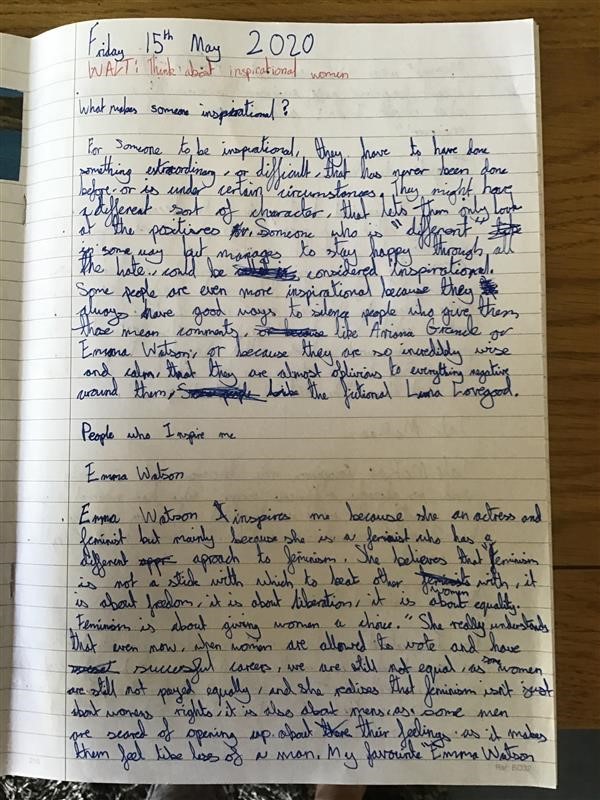 Friday 15th May 2020
WALT: Think about inspirational women
What makes someone inspirational?
For someone to be inspirational, they have to have done
something extraordinary, or difficult, that has never been done
before, or is under certain circumstances. They might have
a different sort of character, that lets them only look
at the positives. Someone who is "different"
in some way but manages to stay happy through all
the hate, could be considered inspirational.
Some people are even more inspirational because they
always have good ways to silence people who give them
those mean comments, or because like Ariana Grande or
Emma Watson, or because they are so incredibly wise
and calm, that they are almost oblivious to everything negative
around them, Some people like the fictional Luna Lovegood.
People who Inspire me
Emma Watson
Emma Watson inspires me because she an actress and
feminist but mainly because she is a feminist who has a
different appr aproach to feminism. She believes that "feminism
is not a stick with which to beat other feminists women with, it
is about freedom, it is about liberation, it is about equality.
Feminism is about giving women a choice." She really understands
that even now, when women are allowed to vote and have
succesful careers, we are still not equal, as some women
are still not payed equally, and she realises that feminism isn't just
about womens rights, it is also about mens, as some men
are scared of opening up about there their feelings as it makes
them feel like less of a man. My favourite "Emma Watson